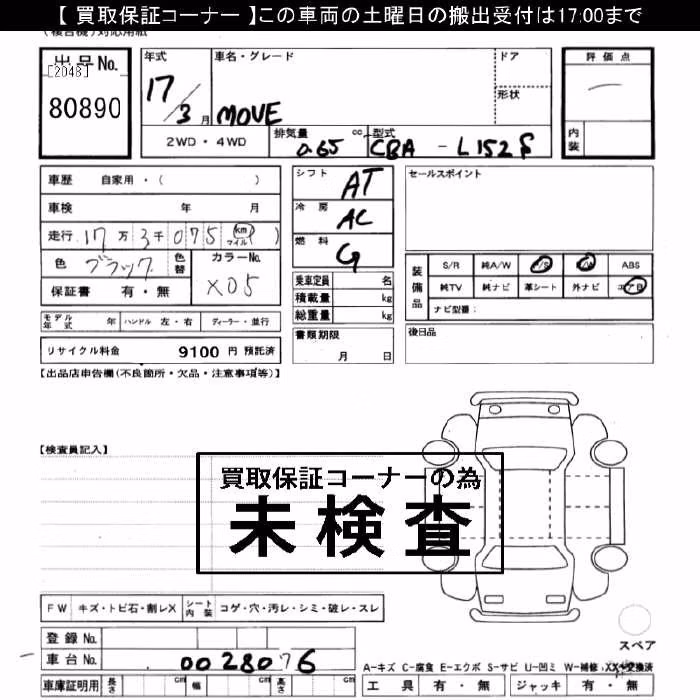 【 買取保証コーナー 】この車両の土曜日の搬出受付は17:00まで
(複合機)対応用紙
出品No.
[2048]
80890
年式
17/3月
車名・グレード
MOVE
ドア
形状
2WD・4WD
排気量
0.65 cc
型式
CBA - L152S
評価点
内装
車歴 自家用・( )
車検 年 月
走行 17万3千075 (km マイル)
色 ブラック 色替
カラーNo.
X05
保証書 有・無
モデル年式 年 ハンドル 左・右 ディーラー・並行
リサイクル料金 9100 円 預託済
シフト AT
冷房 AC
燃料 G
乗車定員 名
積載量 kg
総重量 kg
書類期限
月 日
セールスポイント
装備品
S/R 純A/W P/S P/W ABS
純TV 純ナビ 革シート 外ナビ エアB
ナビ型番:
後日品
【出品店申告欄(不良箇所・欠品・注意事項等)】
【検査員記入】
買取保証コーナーの為
未検査
FW キズ・トビ石・割レX シート内装 コゲ・穴・汚レ・シミ・破レ・スレ
登録No.
車台No. 0028076
車庫証明用 長さ cm 幅 cm 高さ cm
スペア
A-キズ C-腐食 E-エクボ S-サビ U-凹ミ W-補修 XX-交換済
工具 有・無 ジャッキ 有・無